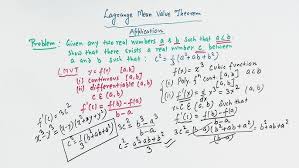 Lagrange Mean Value Theorem
Application
Problem: Given any two real numbers a & b such that a<b.
Show that there exists a real number c, between
a and b such that: c² = ⅓(b²+ab+a²)
LMVT y = f(x) [a,b]
(i) continuous [a,b]
(ii) differentiable (a,b)
c ∈ (a,b)
f'(c) = f(b)-f(a) / b-a
f(x) = x³ cubic function
(i) Poly. f. cont. [a,b] a<b
(ii) Poly. fⁿ diff. (a,b)
c ∈ (a,b) such that
f'(c) = f(b)-f(a) / b-a
f'(x) = 3x²
f'(c) = 3c²
x³-y³ = (x-y)(x²+xy+y²)
3c² = b³-a³ / b-a
3c² = (b-a)(b²+ab+a²) / (b-a) = b²+ab+a²
c² = a²+ab+b² / 3
c² = ⅓(b²+ab+a²)